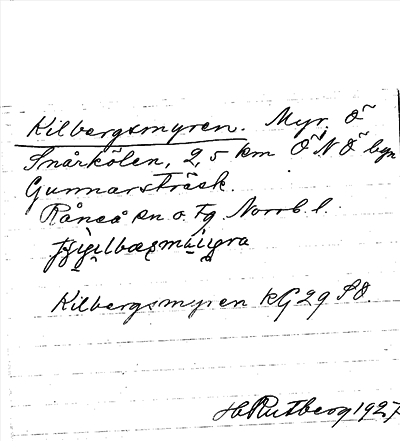 Kilbergsmyren. Myr. Ö
Snårkölen, 2,5 km ÖNÖ byn
Gunnarsträsk.
Råneå sn o. tg Norrb. l.
Kilbergsmyren kG 29 SO.
H Rutberg 1927